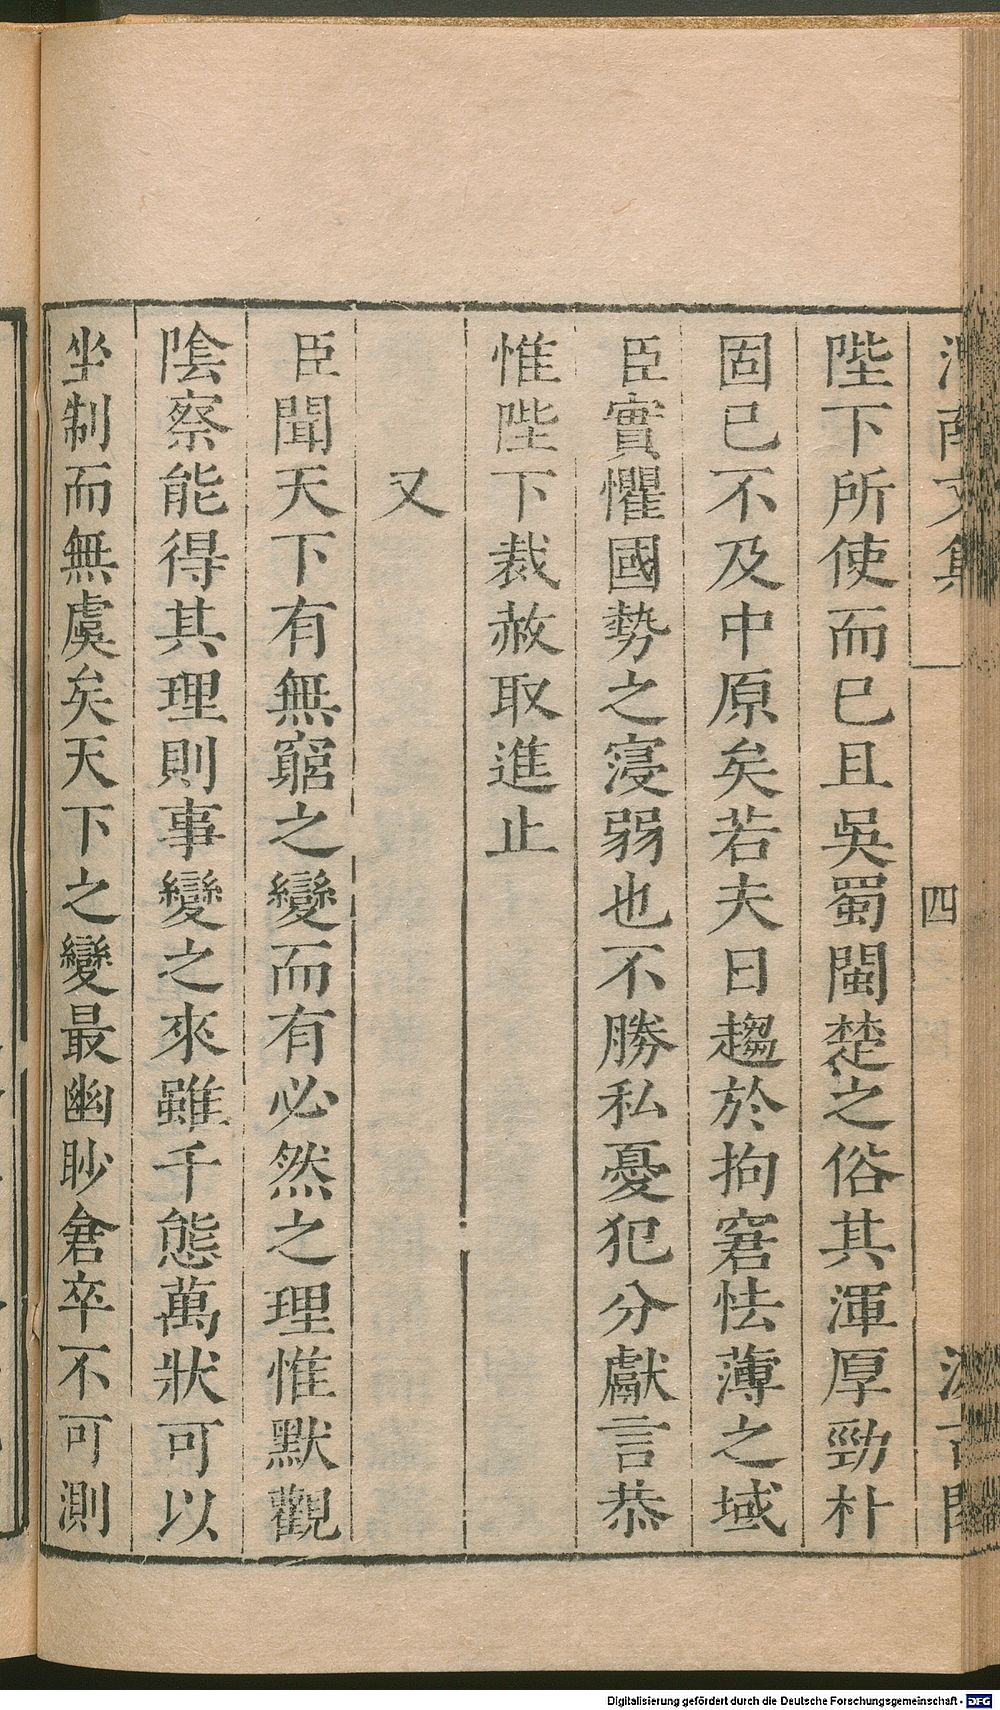 渭南文集 四 汲古閣
陛下所使而已且吳蜀閩楚之俗其渾厚勁朴
固已不及中原矣若夫日趨於拘窘怯薄之域
臣實懼國勢之寖弱也不勝私憂犯分獻言恭
惟陛下裁赦取進止
又
臣聞天下有無窮之變而有必然之理惟默觀
陰察能得其理則事變之來雖千態萬狀可以
坐制而無虞矣天下之變最幽眇倉卒不可測
Digitalisierung gefördert durch die Deutsche Forschungsgemeinschaft - DFG